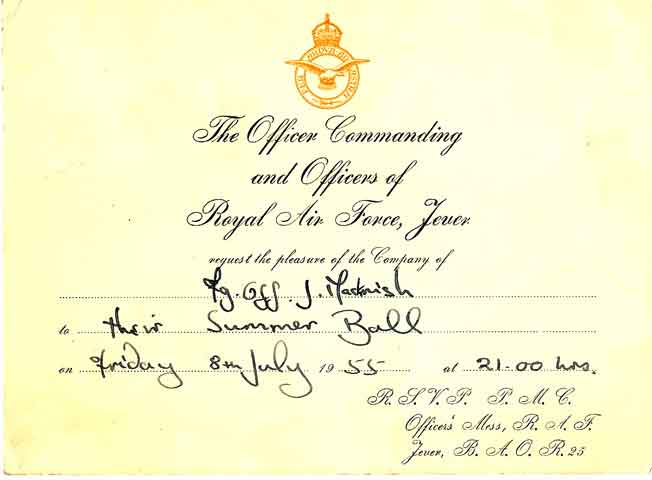 The Officer Commanding
and Officers of
Royal Air Force, Jever
request the pleasure of the Company of
Fg. Off. J. Macknish
to their Summer Ball
on Friday 8th July 1955 at 21.00 hrs.
R. S. V. P. P. M. C.
Officers' Mess, R. A. F.
Jever, B. A. O. R. 25